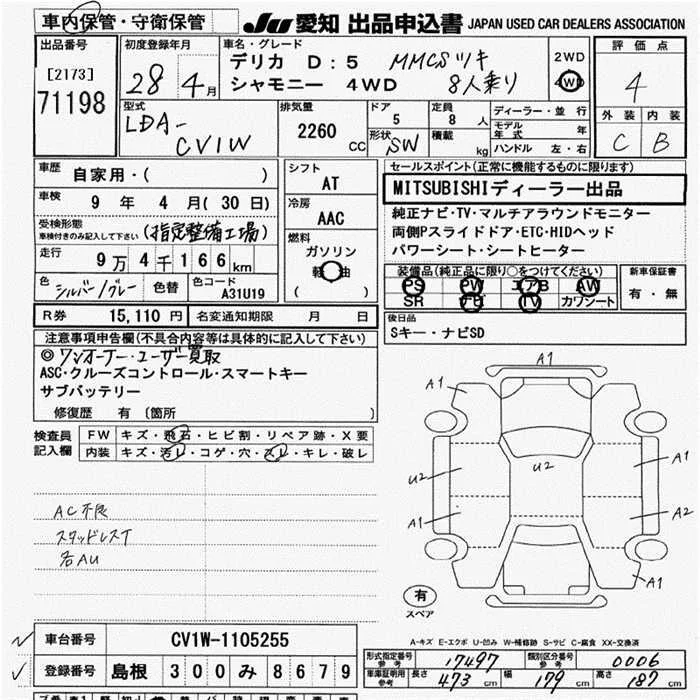 車内保管・守衛保管
JU 愛知 出品申込書 JAPAN USED CAR DEALERS ASSOCIATION
出品番号
[2173]
71198
初度登録年月
28年 4月
車名・グレード
デリカ D:5 MMCSツキ
シャモニー 4WD 8人乗り
2WD
4WD
評価点
4
外装 内装
C B
型式
LDA-
CV1W
排気量
2260 CC
ドア
5
形状
SW
定員
8 人
積載
kg
ディーラー・並行
モデル年式 年
ハンドル 左・右
車歴
自家用・( )
車検
9 年 4 月 ( 30 日)
受検形態
車検付きのみ記入して下さい
(指定整備工場)
走行
9万4千166km
色 シルバー/グレー 色替 色コード A31U19
シフト
AT
冷房
AAC
燃料
ガソリン
軽油
( )
セールスポイント(正常に機能するものに限ります)
MITSUBISHIディーラー出品
純正ナビ・TV・マルチアラウンドモニター
両側Pスライドドア・ETC・HIDヘッド
パワーシート・シートヒーター
装備品(純正品に限り○をつけてください)
PS PW エアB AW
SR ナビ TV カワシート
新車保証書
有・無
R券 15,110 円 名変通知期限 月 日
後日品
Sキー・ナビSD
注意事項申告欄(不具合内容等は具体的に記入して下さい)
◎ワンオーナー・ユーザー買取
ASC・クルーズコントロール・スマートキー
サブバッテリー
修復歴 有 〔箇所 〕
検査員記入欄
FW キズ・飛石・ヒビ割・リペア跡・X要
内装 キズ・汚レ・コゲ・穴・スレ・キレ・破レ
AC不良
スタッドレスT
右AU
A1
A1
U2
U2
A1
A1
A2
A1
有
スペア
A-キズ E-エクボ U-凹み W-補修跡 S-サビ C-腐食 XX-交換済
車台番号 CV1W-1105255
登録番号 島根 300 み 8679
形式指定番号 参考 17497 類別区分番号 参考 0006
車庫証明用 参考 長さ 473 cm 幅 179 cm 高さ 187 cm